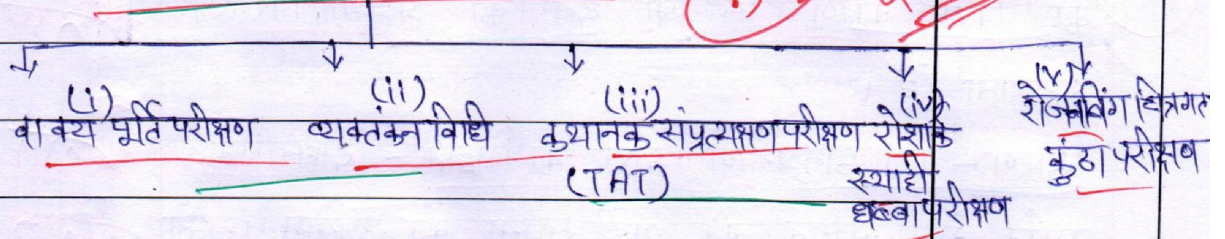 (i) वाक्य पूर्ति परीक्षण
(ii) व्यक्तंकन विधि
(iii) कथानक संप्रत्यक्षण परीक्षण
(TAT)
(iv) रोर्शाक
स्याही
धब्बा परीक्षण
(v) रोजनविंग चित्रगत
कुंठा परीक्षण